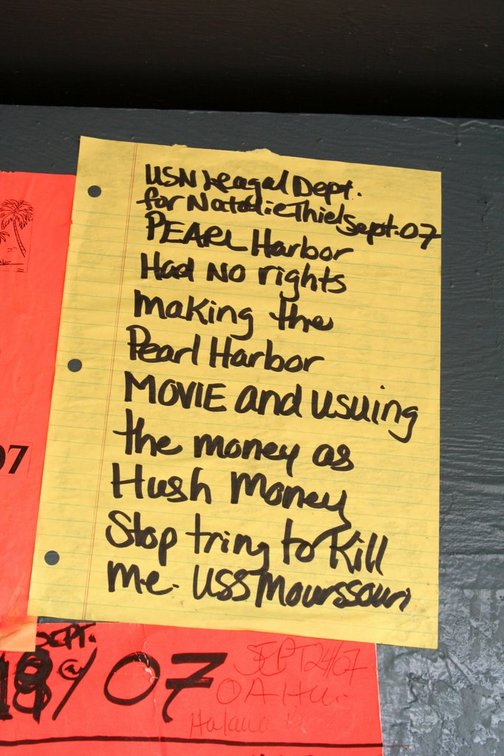 USN Leagal Dept.
for Natalie Thiel Sept. 07
PEARL Harbor
Had NO rights
making the
Pearl Harbor
MOVIE and usuing
the money as
Hush Money
Stop tring to Kill
me. USS Mourssouri
07
SEPT.
18 @ 07
SEPT 24/07
OAHU